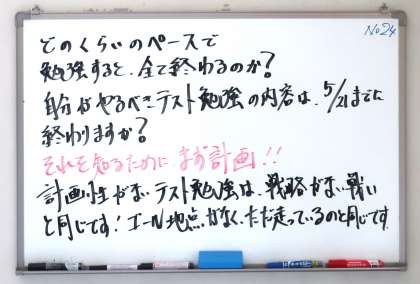 No24
どのくらいのペースで
勉強すると、全て終わるのか?
自分がやるべきテスト勉強の内容は、5/21までに
終わりますか?
それを知るために まず計画!!
計画性がないテスト勉強は、戦略がない戦い
と同じです!ゴール地点がなく、ただ走っているのと同じです。